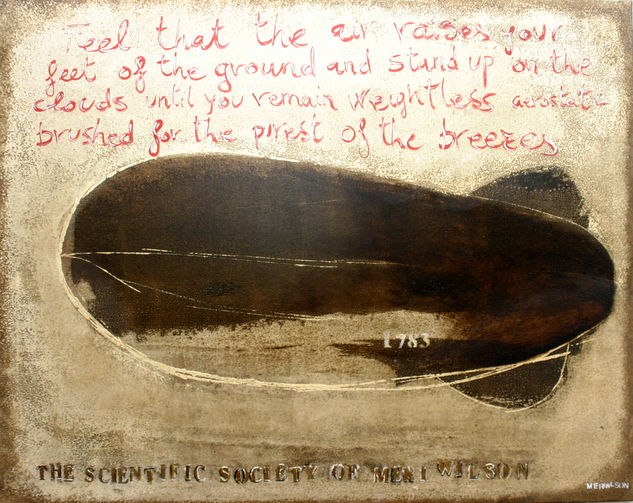 Feel that the air raises your
feet of the ground and stand up on the
clouds until you remain weightless aerostatic
brushed for the purest of the breezes
1783
THE SCIENTIFIC SOCIETY OF MERI WILSON
MERIWILSON